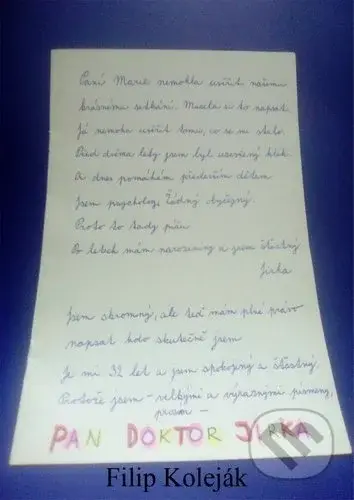 Paní Marie nemohla uvěřit našemu
krásnému setkání. Musela si to napsat.
Já nemohu uvěřit tomu, co se mi stalo.
Před dvěma lety jsem byl uzavřený kluk.
A dnes pomáhám především dětem.
Jsem psycholog. Žádný obyčejný.
Proto to tady píšu
Po letech mám narozeniny a jsem šťastný
Jirka
Jsem skromný, ale teď mám plné právo
napsat kdo skutečně jsem
Je mi 32 let a jsem spokojený a šťastný.
Protože jsem - velkými a výraznými písmeny,
prosím -
PAN DOKTOR JIRKA
Filip Koleják